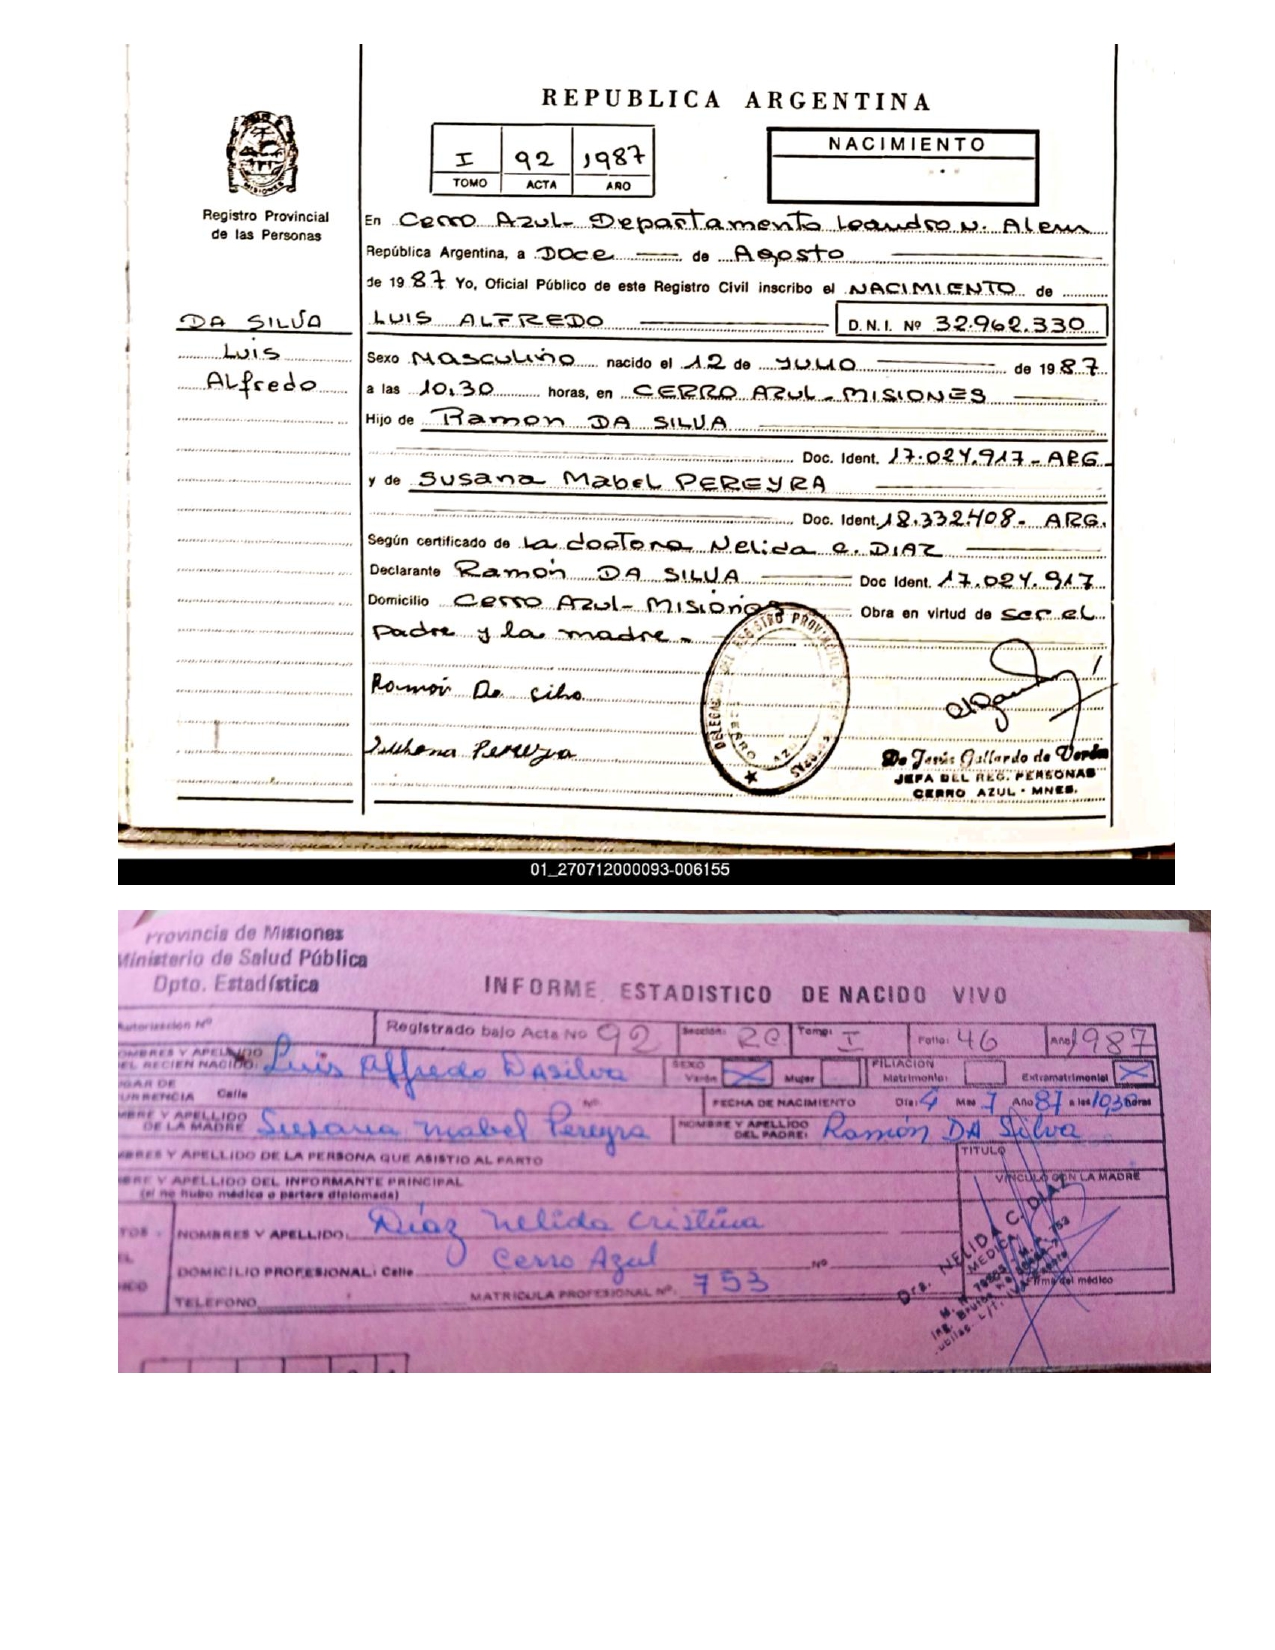 REPUBLICA ARGENTINA
I 92 1987
TOMO ACTA AÑO
NACIMIENTO
Registro Provincial
de las Personas
En Cerro Azul- Departamento Leandro N. Alem
República Argentina, a Doce de Agosto
de 1987 Yo, Oficial Público de este Registro Civil inscribo el NACIMIENTO de
DA SILVA
Luis
Alfredo
LUIS ALFREDO D.N.I. Nº 32.962.330
Sexo Masculino nacido el 12 de Julio de 1987
a las 10,30 horas, en CERRO AZUL - MISIONES
Hijo de Ramon DA SILVA
Doc. Ident. 17.024.917- ARG.
y de Susana Mabel PEREYRA
Doc. Ident. 18.332.408- ARG.
Según certificado de la doctora Nelida C. DIAZ
Declarante Ramón DA SILVA Doc Ident. 17.024.917
Domicilio Cerro Azul- Misiones Obra en virtud de ser el
padre y la madre.
Ramón Da Silva
Susana Pereyra
CERRO AZUL
De Jesús Gallardo de Verón
JEFA DEL REG. PERSONAS
CERRO AZUL - MNES.
01_270712000093-006155
Provincia de Misiones
Ministerio de Salud Pública
Dpto. Estadística
INFORME ESTADISTICO DE NACIDO VIVO
Autorización Nº
Registrado bajo Acta No 92 Sección: RC Tomo: I Folio: 46 Año 1987
NOMBRES Y APELLIDO
DEL RECIEN NACIDO: Luis Alfredo DAsilva
SEXO
Varón Mujer
FILIACION
Matrimonial Extramatrimonial
LUGAR DE
OCURRENCIA Calle Nº
FECHA DE NACIMIENTO Día: 4 Mes 7 Año 87 a las 10,30 horas
NOMBRE Y APELLIDO
DE LA MADRE Susana Mabel Pereyra
NOMBRE Y APELLIDO
DEL PADRE: Ramón DA Silva
NOMBRES Y APELLIDO DE LA PERSONA QUE ASISTIO AL PARTO
TITULO
NOMBRE Y APELLIDO DEL INFORMANTE PRINCIPAL
(si no hubo médico o partera diplomada)
VINCULO CON LA MADRE
NOMBRES Y APELLIDO: Díaz Nelida Cristina
DOMICILIO PROFESIONAL: Calle Cerro Azul No
TELEFONO MATRICULA PROFESIONAL Nº 753
Dra. NELIDA C. DIAZ
MEDICA
Firma del médico